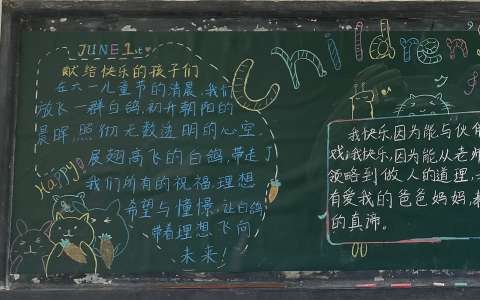 JUNE 1st
献给快乐的孩子们
在六一儿童节的清晨,我们
放飞一群白鸽,初升朝阳的
晨晖,照彻无数透明的心空,
展翅高飞的白鸽,带走了
我们所有的祝福,理想
希望与憧憬,让白鸽
带着理想飞向
未来!
Happy!
Children
我快乐,因为能与伙
戏;我快乐,因为能从老师
领略到做人的道理;
有爱我的爸爸妈妈,
的真谛。